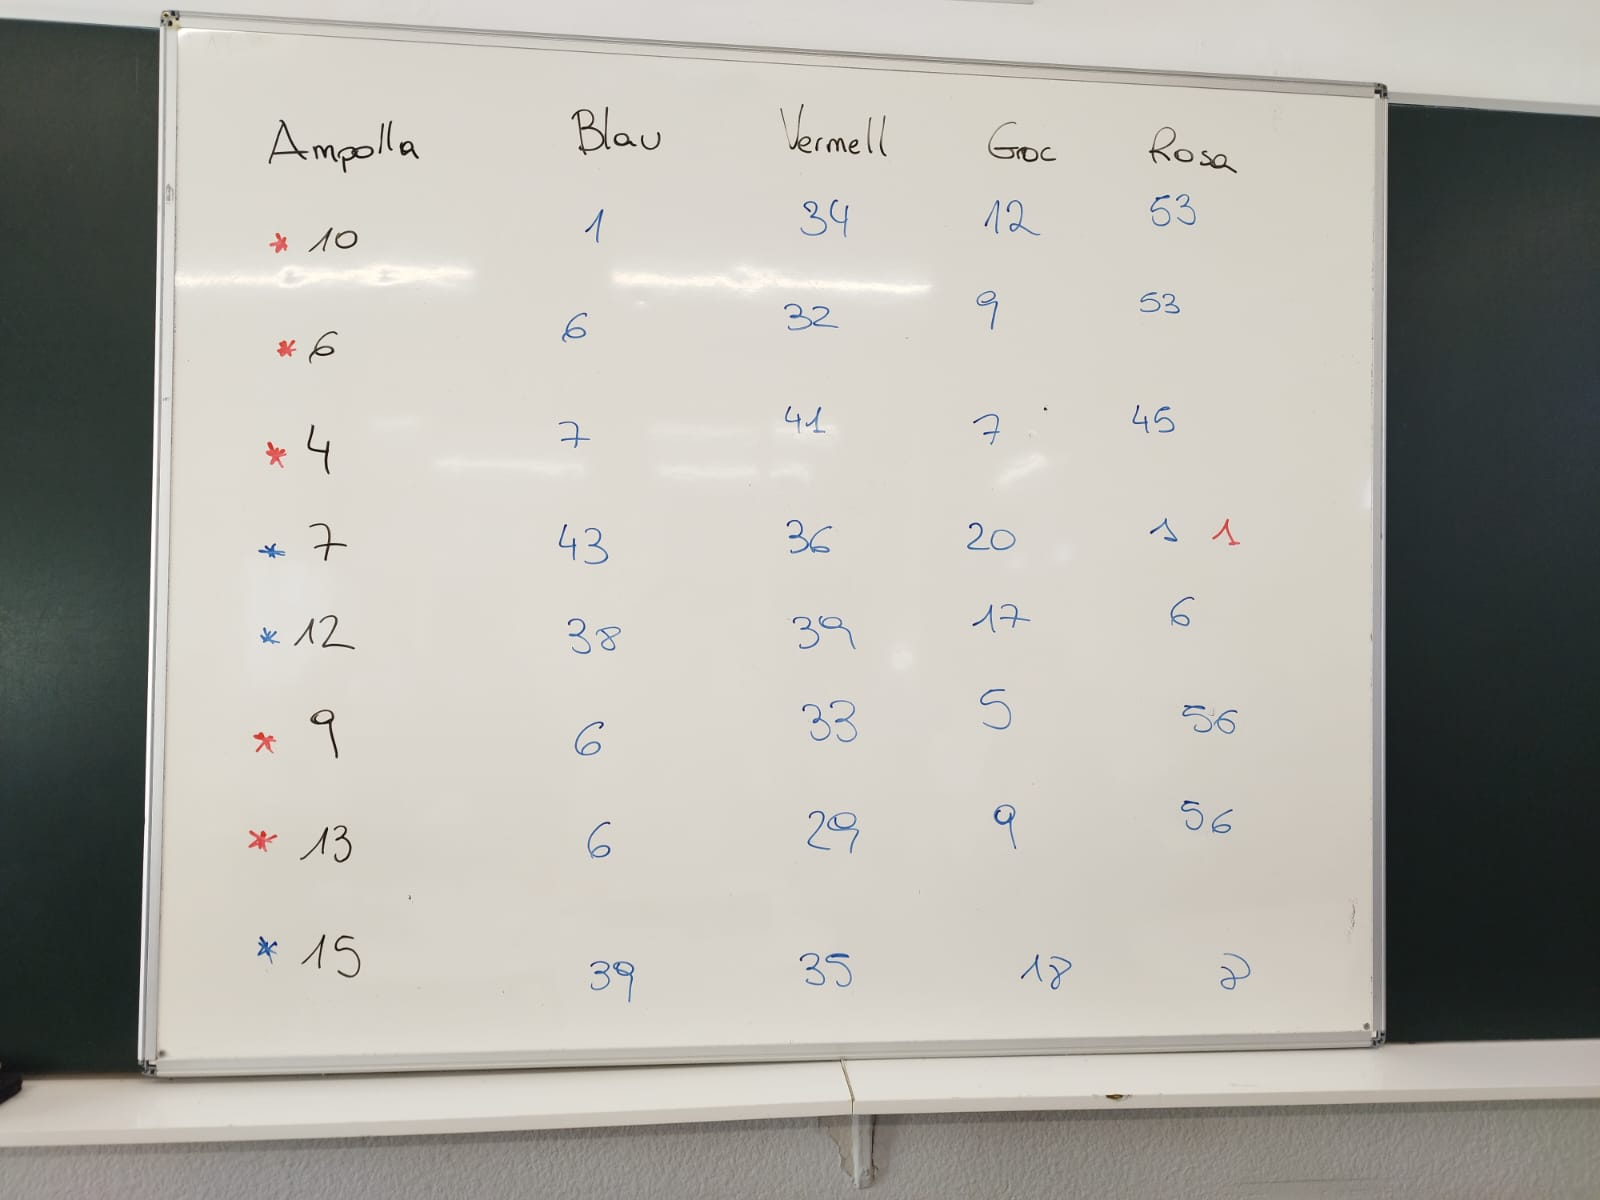 Ampolla Blau Vermell Groc Rosa
* 10 1 34 12 53
* 6 6 32 9 53
* 4 7 41 7 45
* 7 43 36 20 1 1
* 12 38 39 17 6
* 9 6 33 5 56
* 13 6 29 9 56
* 15 39 35 18 8